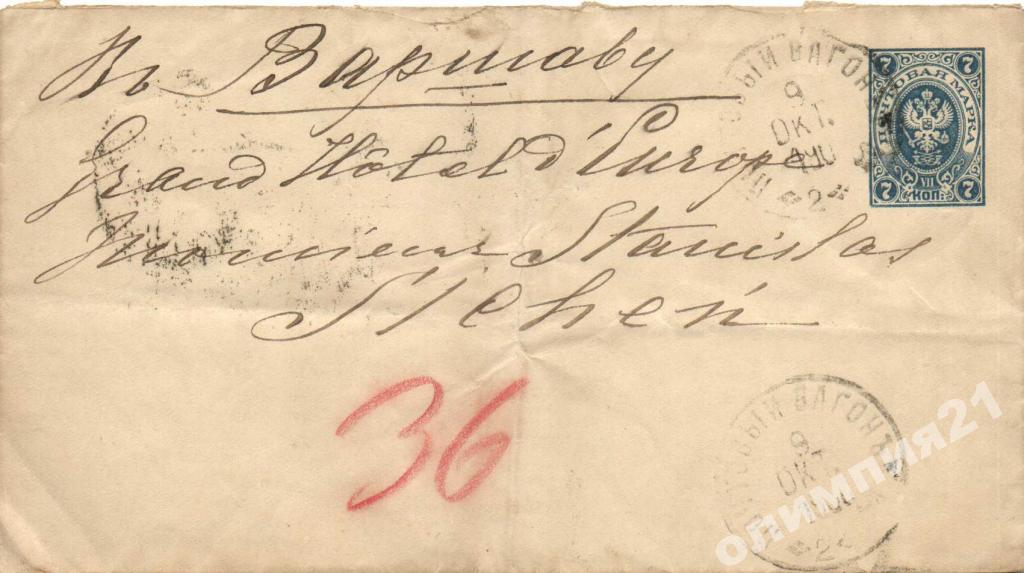 Въ Варшаву
Grand Hôtel d'Europe
Monsieur Stanislas
Sichen
36
ПОЧТОВЫЙ ВАГОНЪ
9
ОКТ.
2
7 7
ПОЧТОВАЯ МАРКА
7 КОП. 7
ПОЧТОВЫЙ ВАГОНЪ
9
ОКТ
2
олимпия21